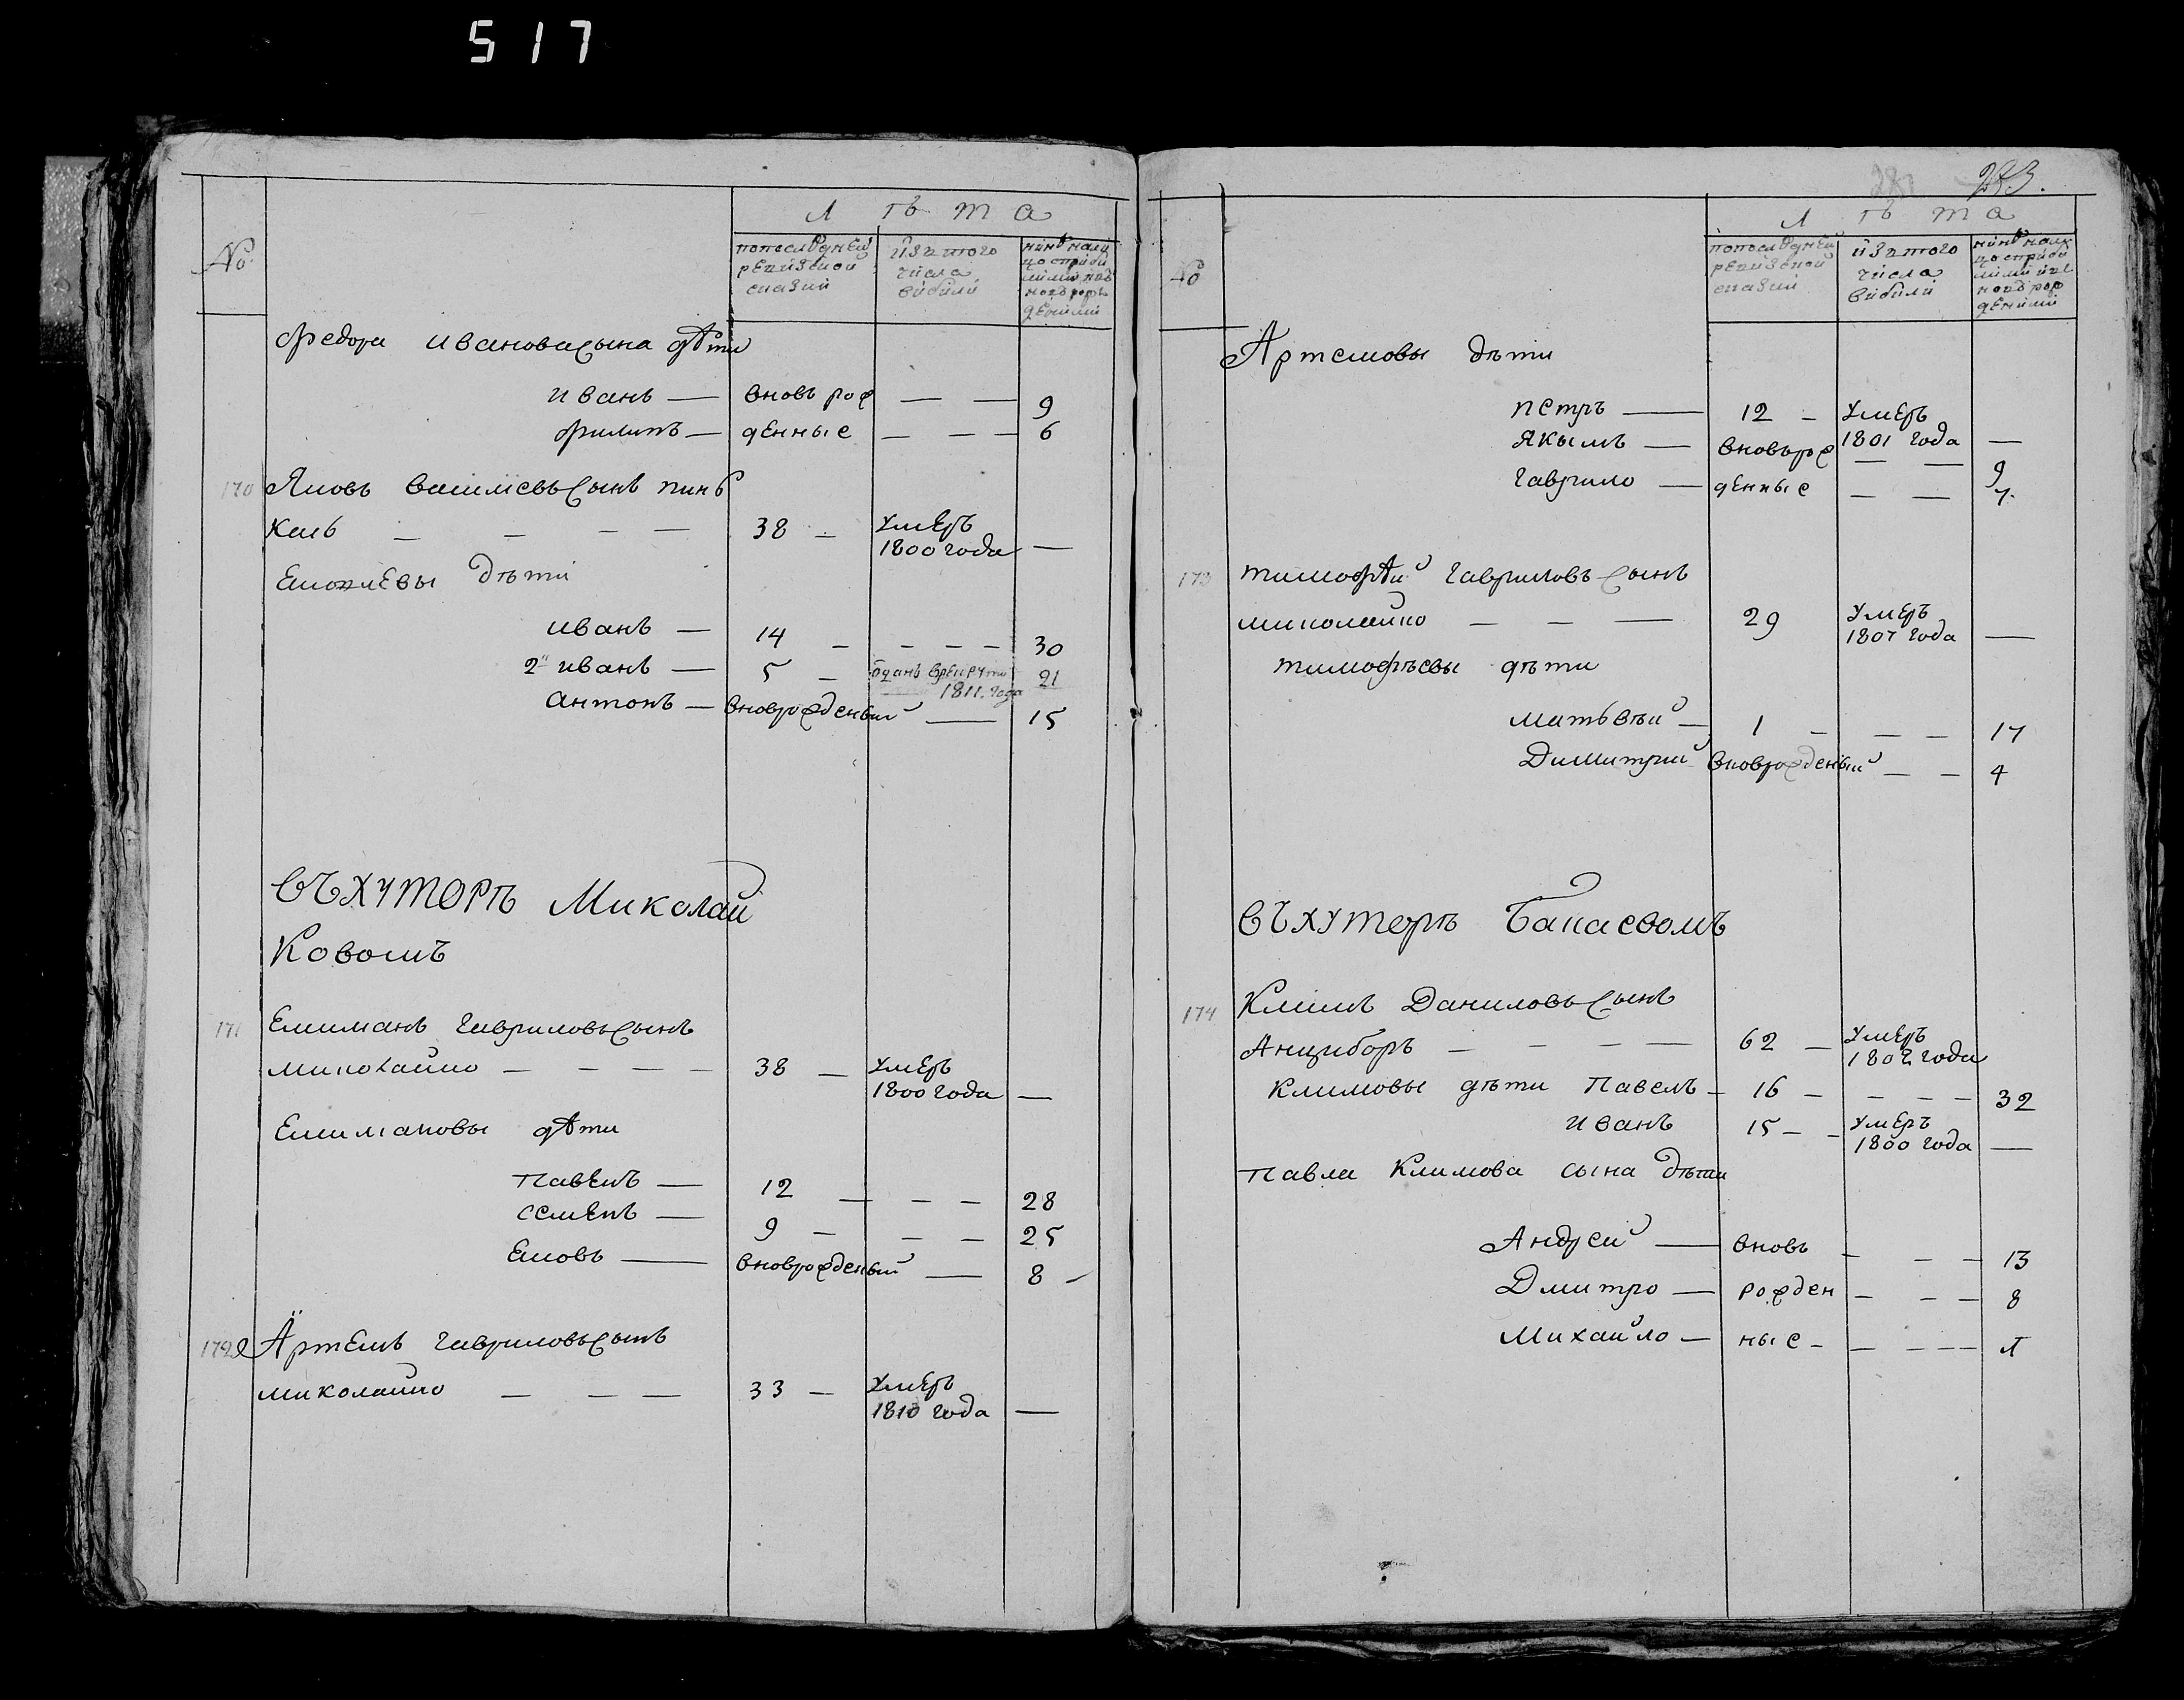 517
Лѣта
№
попослѣдней ревизской сказки
изъ того числа выбыли
Федора Иванова сына дѣти
Иванъ — вновь рож — — 9
Филипъ — денные — — — 6
170 Яковъ Василіевъ сынъ
— — — — 38 — умеръ
1800 года —
дѣти
Иванъ — 14 — — — — 30
2й Иванъ — 5 — 1811. года 21
Антонъ — вноврожденый — 15
Въ хуторѣ Миколай
ковомъ
171 Гавриловъ сынъ
Миколайко — — — — 38 — умеръ
1800 года —
дѣти
Павелъ — 12 — — — 28
Семенъ — 9 — — — 25
вноврожденый — 8 —
172 Артемъ Гавриловъ сынъ
Миколайко — — — 33 — умеръ
1810 года —
283.
Лѣта
№
попослѣдней ревизской сказки
изъ того числа выбыли
Артемовы дѣти
Петръ — 12 — умеръ
1801 года —
Якымъ — вновь рож — — 9
Гаврило — денные — — 7
173 Тимофѣй Гавриловъ сынъ
Миколайко — — — 29 умеръ
1807 года —
Тимофѣевы дѣти
Матьвѣй — 1 — — — 17
Димитрий вноврожденый — — 4
Въ хуторѣ
174 Климъ Даниловъ сынъ
Анциборъ — — — — 62 — умеръ
1802 года
Климовы дѣти Павелъ — 16 — — — — 32
Иванъ 15 — — умеръ
1800 года —
Павла Климова сына дѣти
Андрей — вновь — — — 13
Дмитро — рожден — — — 8
Михайло — ные — — — —